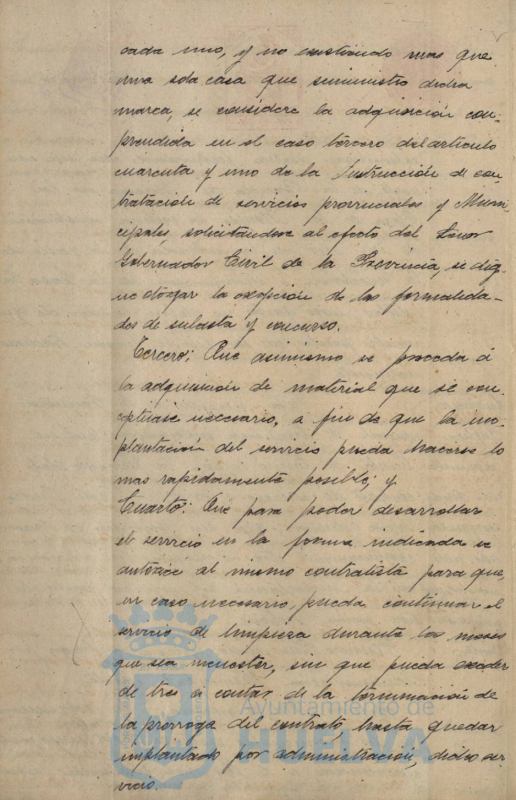 cada uno, y no existiendo mas que
una sola casa que suministre dicha
marca, se considere la adquisición com-
prendida en el caso tercero del artículo
cuarenta y uno de la Instrucción de con-
tratación de servicios provinciales y Muni-
cipales, solicitandose al efecto del Señor
Gobernador Civil de la Provincia, se dig-
ne otorgar la excepción de las formalida-
des de subasta y concurso.
Tercero: Que asimismo se proceda á
la adquisición de material que se con-
ceptuase necesario, a fin de que la im-
plantación del servicio pueda hacerse lo
mas rapidamente posible; y
Cuarto: Que para poder desarrollar
el servicio en la forma indicada se
autorice al mismo contratista para que,
en caso necesario, pueda continuar el
servicio de limpieza durante los meses
que sea menester, sin que pueda exceder
de tres á contar de la terminación de
la prórroga del contrato, hasta quedar
implantado por administración, dicho ser-
vicio.
Ayuntamiento de
HUELVA